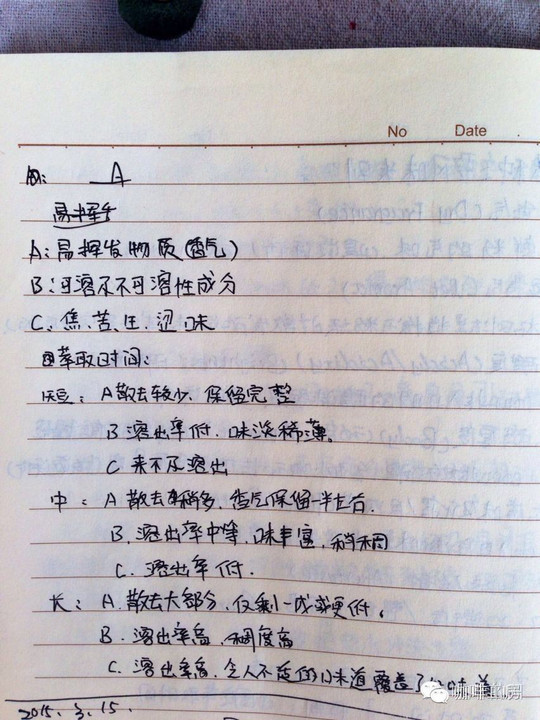 No Date
A
A：易挥发物质（香气）
B：可溶及不可溶性成分
C、焦、苦、, 涩、味
萃取时间：
短：A散去较少．保留完整
B 溶出率低．味淡稀薄。
C 来不及溶出
中：A 散去稍多，香气保留一半左右．
B. 溶出率中等，味丰富．稍稠
C．溶出率低．
长：A. 散去大部分．仅剩一成或更低。
B．溶出率高，稠度高
C．溶出率高，令人不适的味道覆盖了
2015. 3. 15.
咖啡私房